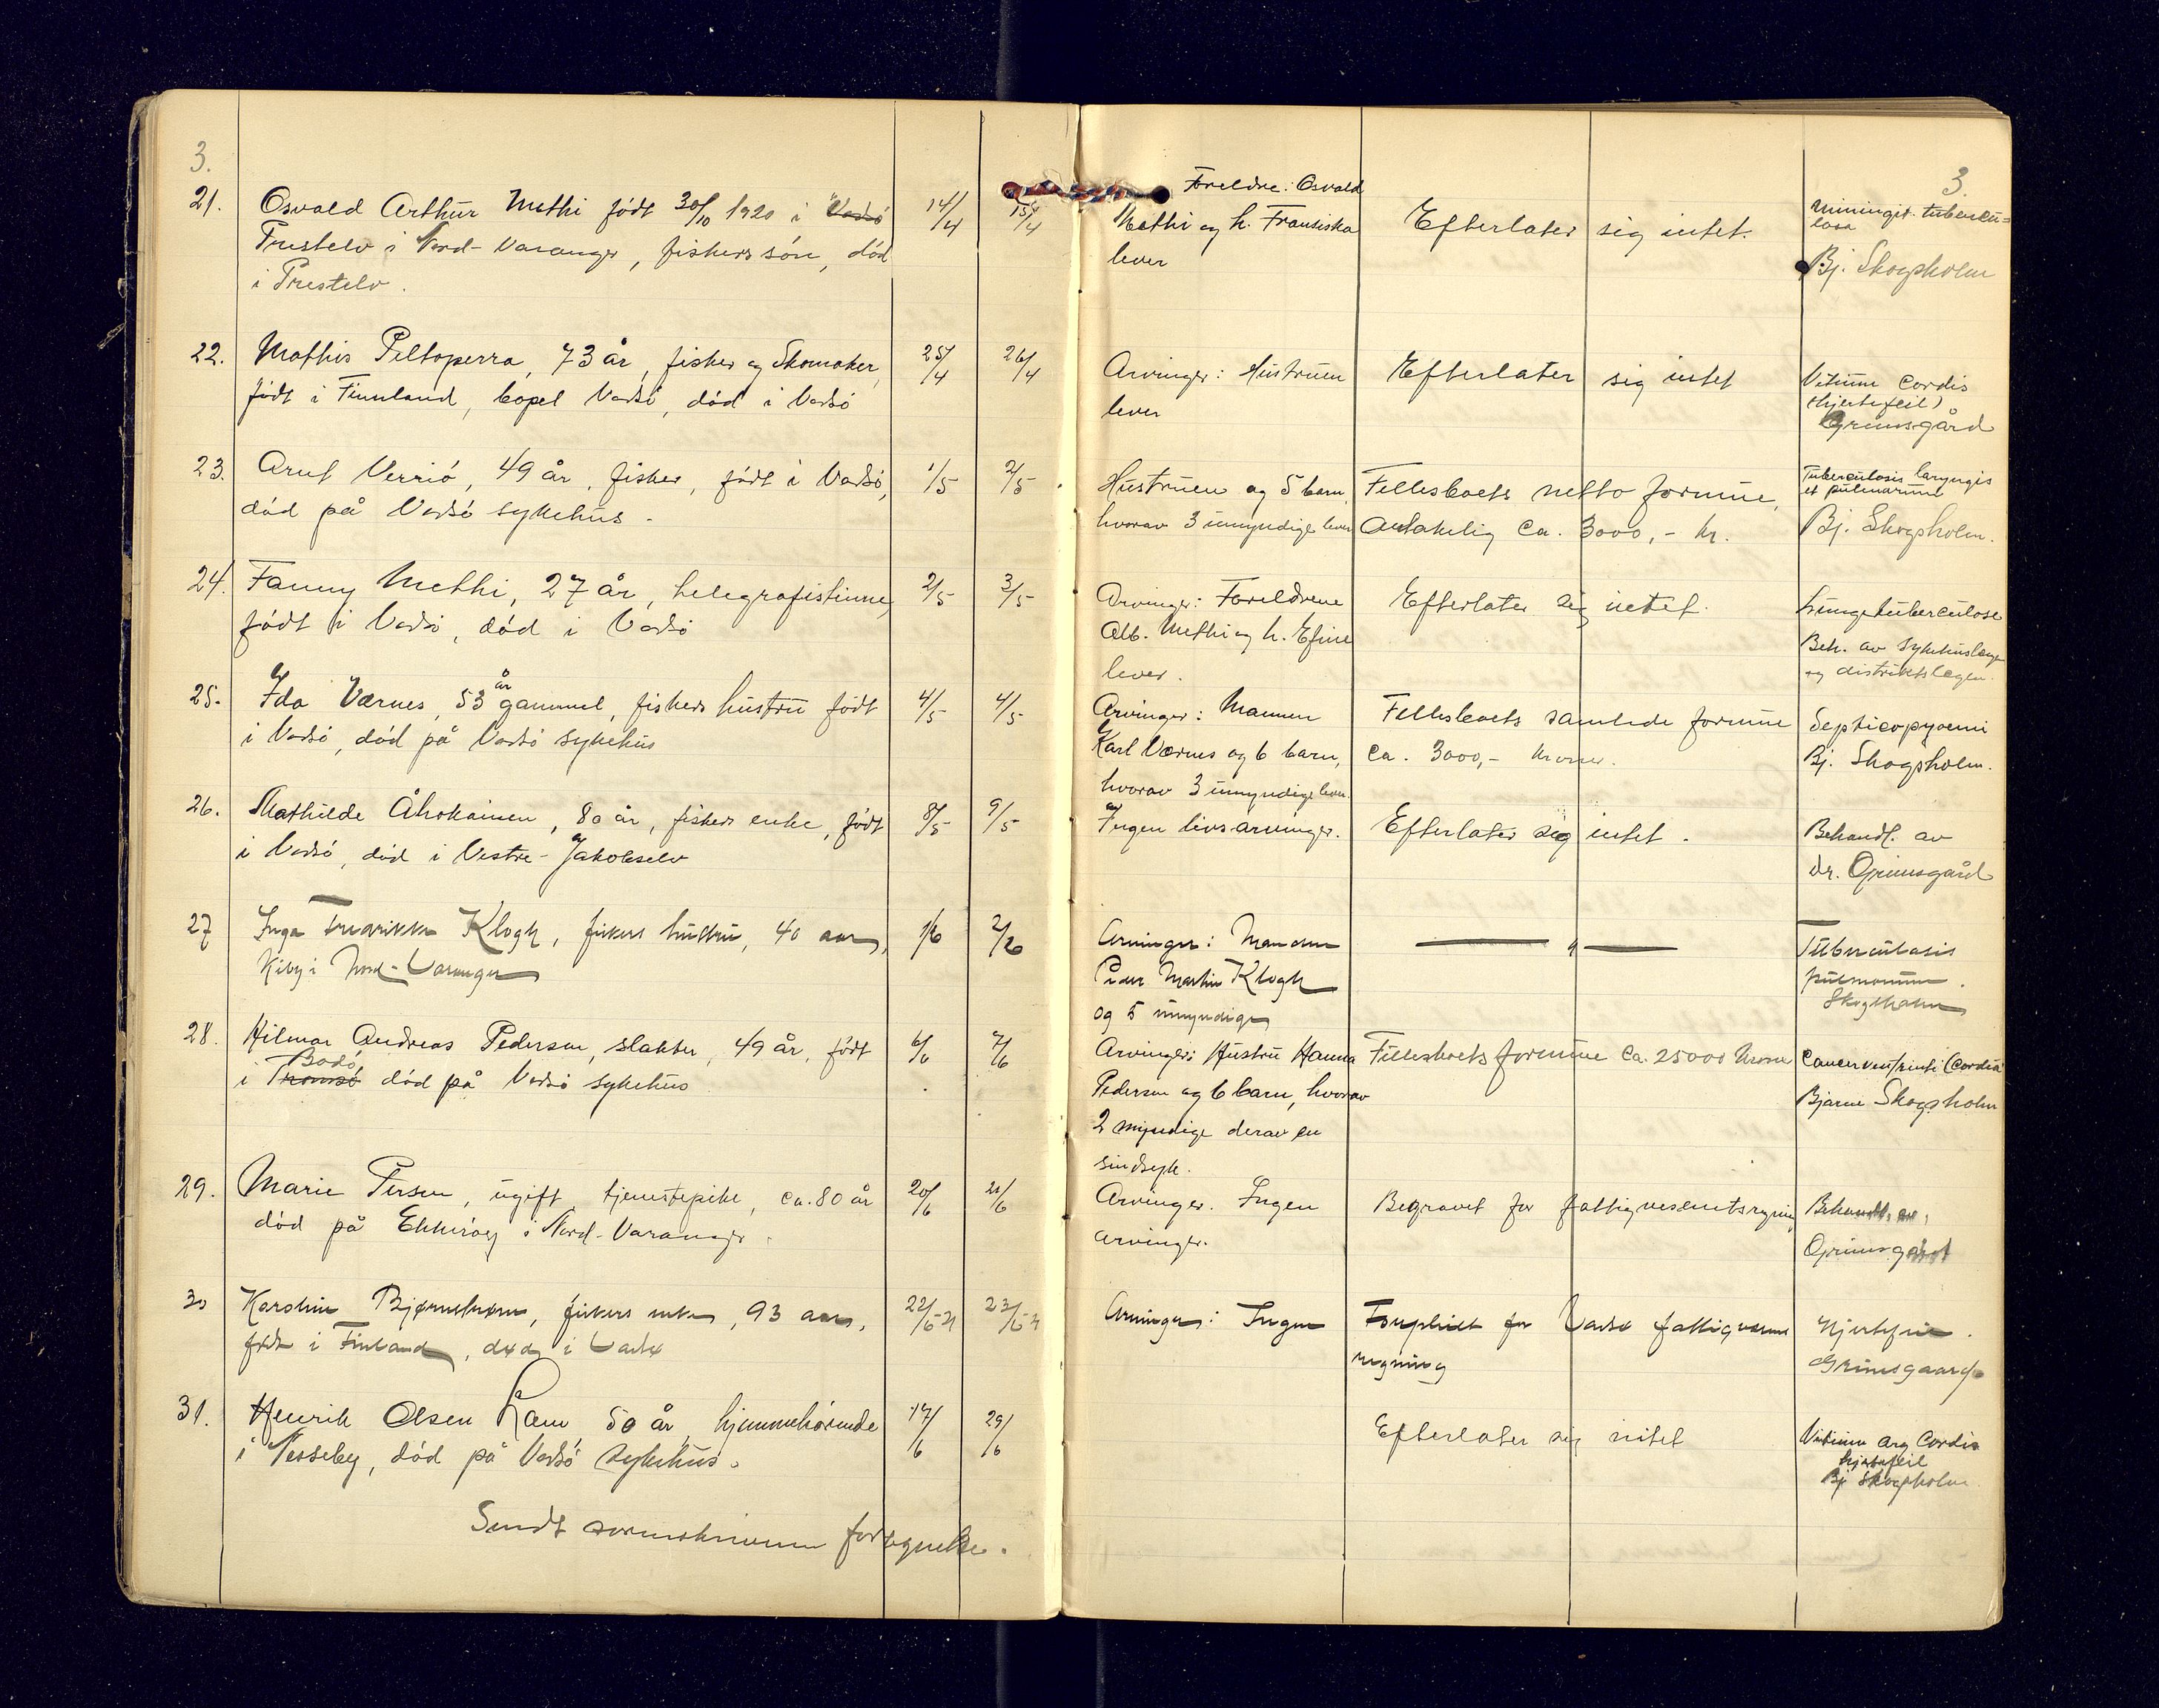 3.
3.
21. Osvald Arthur Methi født 30/10 1920 i Vadsö 14/4 15/4
Prestelv i Nord-Varanger, fiskers sön, död
i Prestelv.
Foreldre: Osvald
Methi og h. Fransiska
lever
Efterlater sig intet.
Miningit. tubercu=
losa
Bj. Skogsholm
22. Mathis Peltoperra, 73 år, fisker og Skomaker, 25/4 26/4
født i Finnland, bopel Vadsö, död i Vadsö
Arvinger: Hustruen
lever
Efterlater sig intet
Vitium Cordis
(hjertefeil)
Grimsgård
23. Arut Verriö, 49 år, fisker, födt i Vadsö, 1/5 2/5
död på Vadsö sykehus.
Hustruen og 5 barn,
hvorav 3 umyndige lever
Fellesboets netto formue,
Antakelig Ca. 3000,- kr.
Tuberculosis laryngis
et pulmorum
Bj. Skogsholm.
24. Fanny Methi, 27 år, telegrafistinne, 2/5 3/5
født i Vadsö, död i Vadsö
Arvinger: Foreldrene
Alb. Methi og h. Efine
lever.
Efterlater sig intet.
Lungetuberculose
Beh. av sykehuslægen
og distriktslægen.
25. Ida Værnes, 53 år gammel, fiskers hustru født 4/5 4/5
i Vadsö, död på Vadsö sykehus
Arvinger: Mannen
Karl Værnes og 6 barn,
hvorav 3 umyndige lever.
Fellesboets samlede formue
ca. 3000,- kroner.
Septicopyæmi
Bj. Skogsholm.
26. Mathilde Åhokainen, 80 år, fiskers enke, født 8/5 9/5
i Vadsö, död i Vestre-Jakobselv
Ingen livsarvinger.
Efterlater sig intet.
Behandl. av
dr. Grimsgård
27 Inga Fredrikke Klogh, fiskers hustru, 40 aar, 1/6 2/6
Kiby i Nord-Varanger
Arvinger: Manden
Peder Martin Klogh
og 5 umyndige
— " —
Tuberculosis
pulmonum.
Skogsholm
28. Hilmar Andreas Pedersen, slakter, 49 år, født 6/6 7/6
Bodö,
i Tromsö død på Vadsö sykehus
Arvinger: Hustru Hanna
Pedersen og 6 barn, hvorav
2 myndige derav en
sindsyk.
Fellesboets formue Ca. 25000 kroner
Cancer ventriculi (Cordia
Bjarne Skogsholm
29. Marie Persen, ugift tjenestepike, ca. 80 år 20/6 21/6
död på Ekkeröy i Nord-Varanger.
Arvinger. Ingen
arvinger.
Begravet for fattigvesenets regning
Behandl. av
Grimsgård
30 Karoline Bjørnstrøm, fiskers enke, 93 aar, 22/6-21 23/6-21
født i Finland, død i Vadsø
Arvinger: Ingen
Forpleiet for Vadsø fattigvæsens
regning
Hjertefeil.
Grimsgaard
31. Henrik Olsen Ram 50 år, hjemmehörende 17/6 29/6
i Nesseby, död på Vadsö sykehus.
Efterlater sig intet
Vitium org Cordis
hjertefeil
Bj Skogsholm
Sendt sorenskriveren fortegnelse.